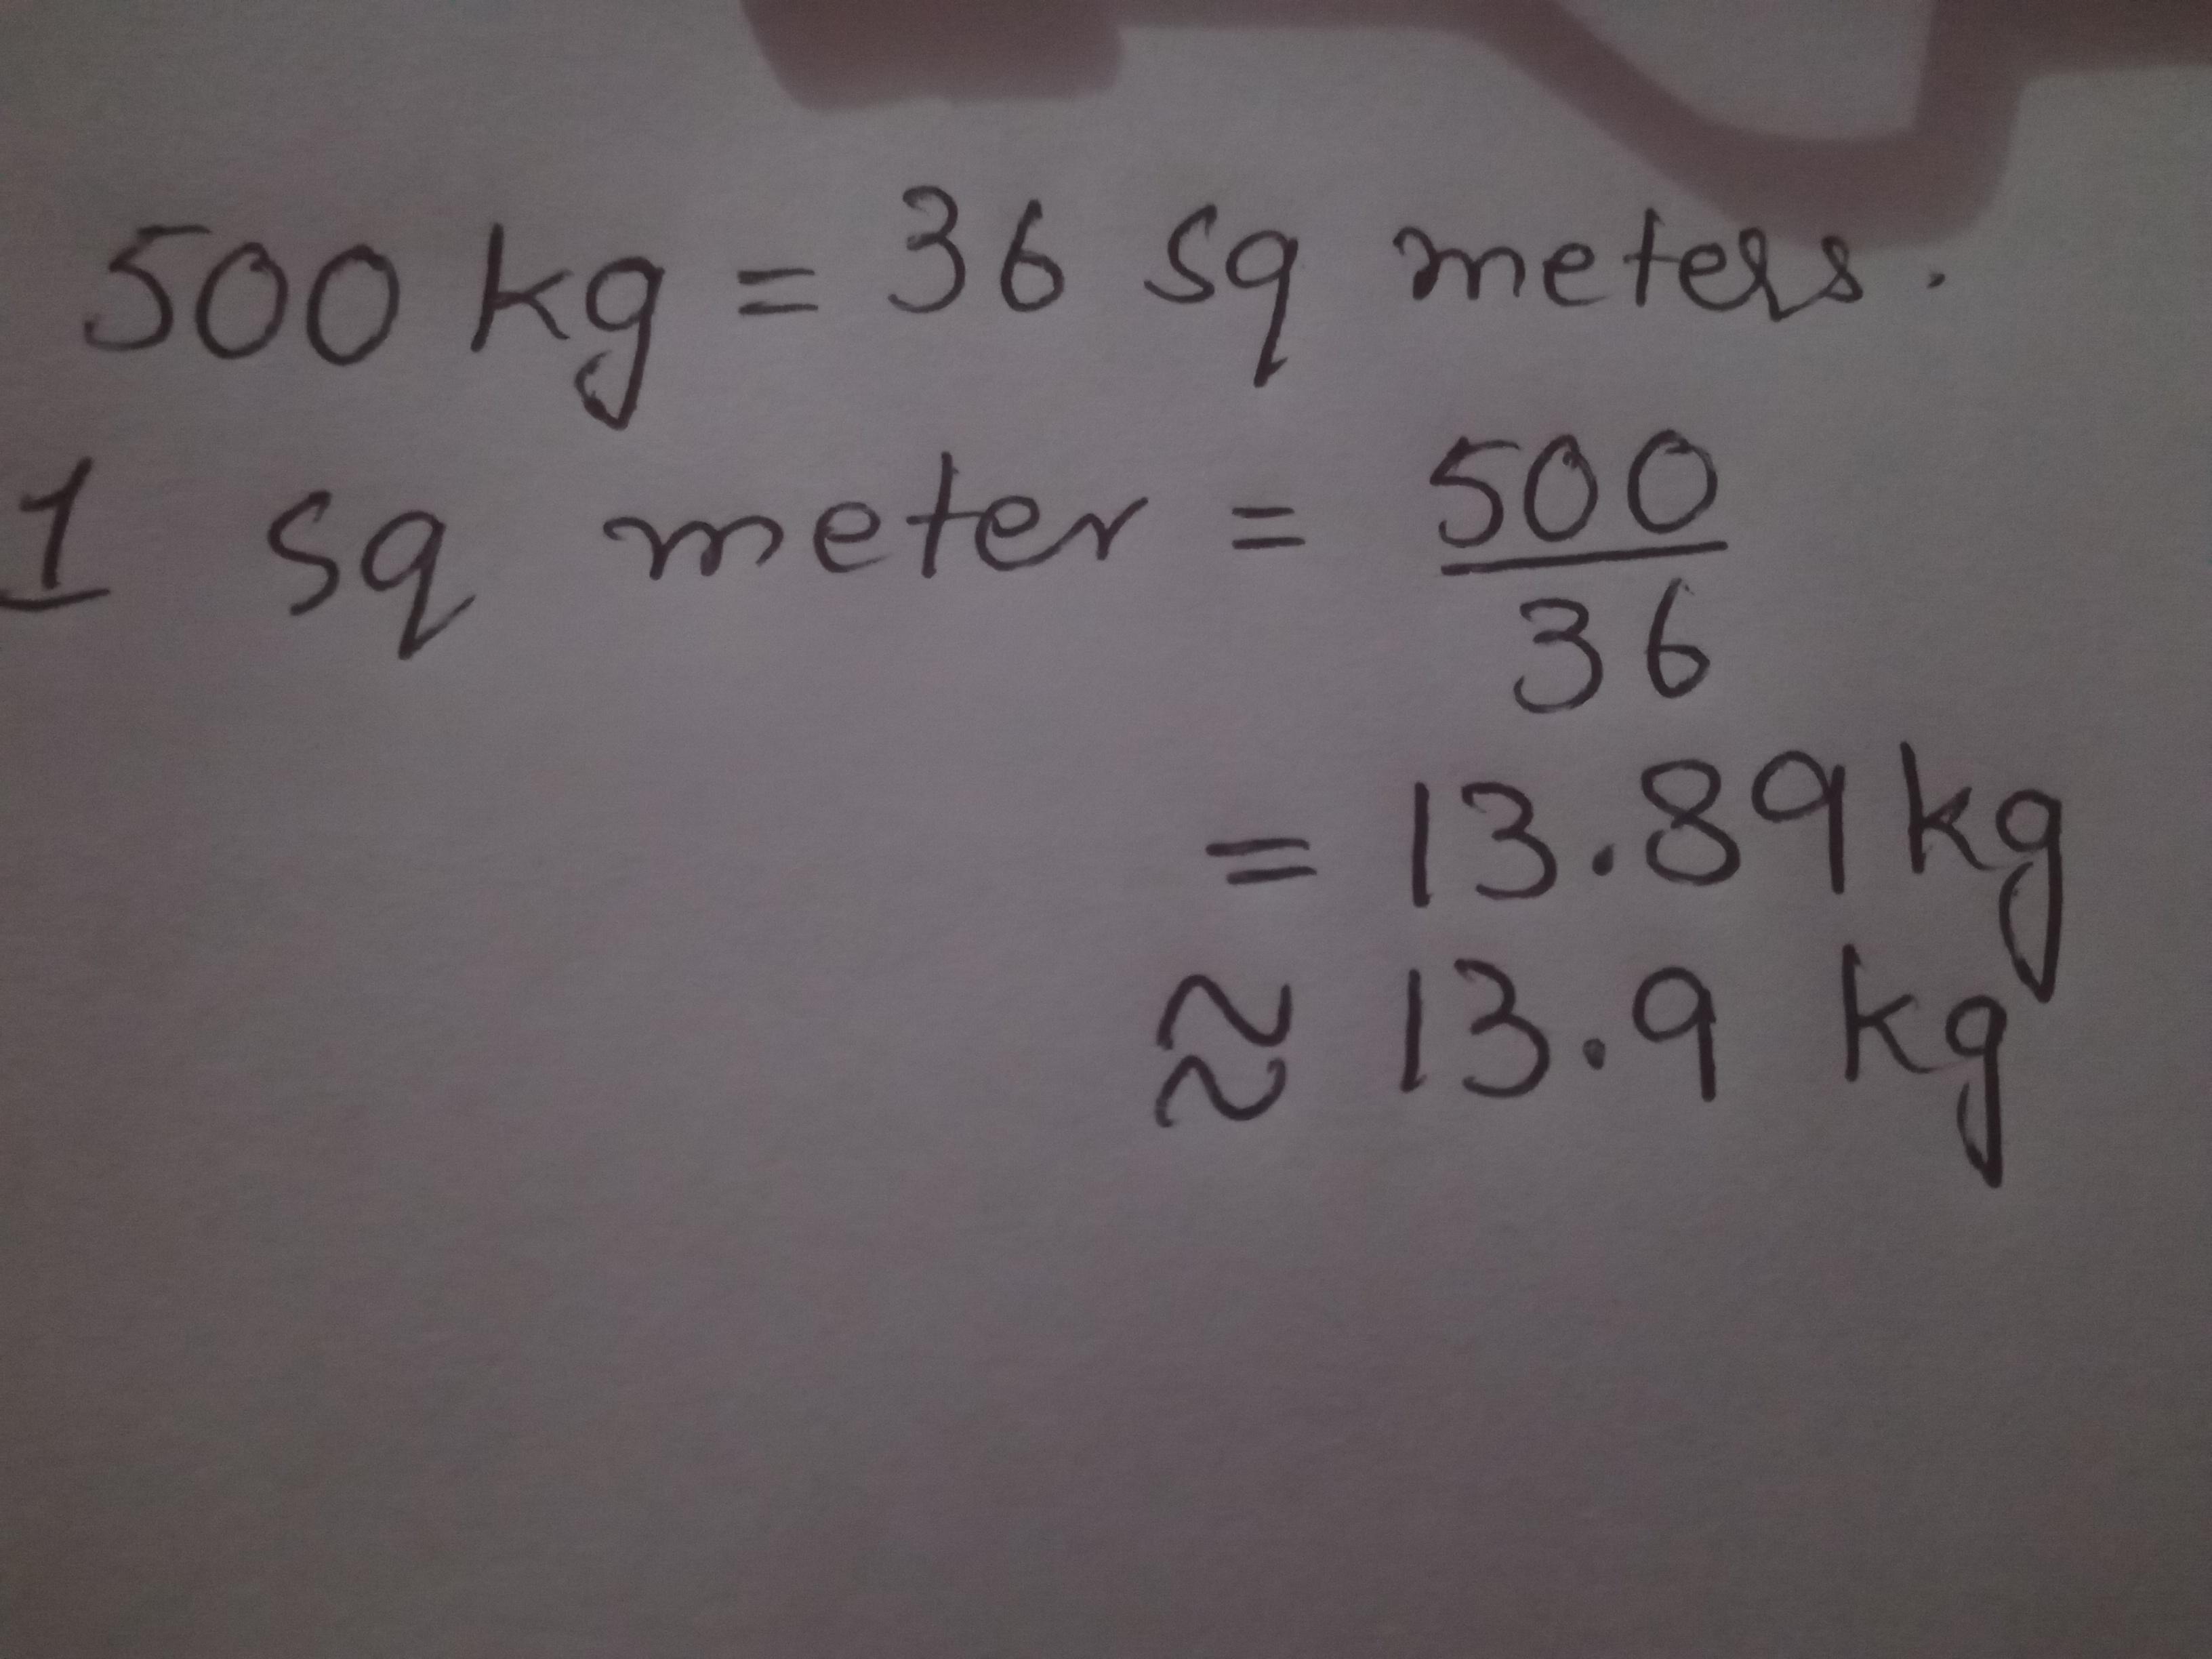 500 kg = 36 sq meters.
1 sq meter = 500/36
= 13.89 kg
≈ 13.9 kg